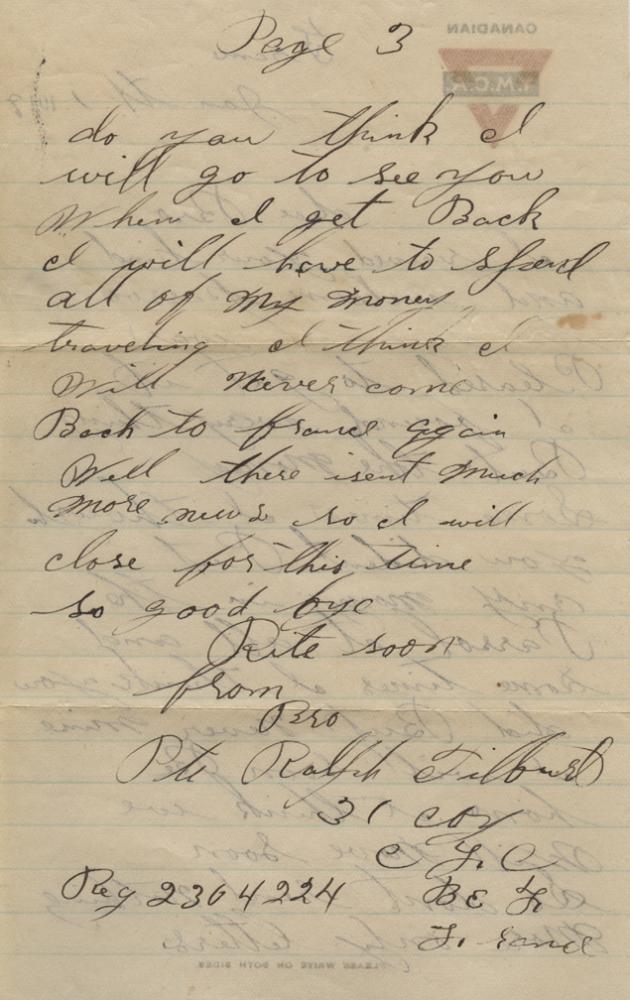 Page 3
CANADIAN
Y.M.C.A.
do you think I
will go to see you
When I get Back
I will have to spend
all of my money
traveling I think I
Will Never come
Back to france again
Well there isent much
more news so I will
close for this time
so good bye
Rite soon
from
Bro
Pte Ralph Tilbert
31 coy
C F. C
Reg 2304224 B E F.
F. rance
PLEASE WRITE ON BOTH SIDES